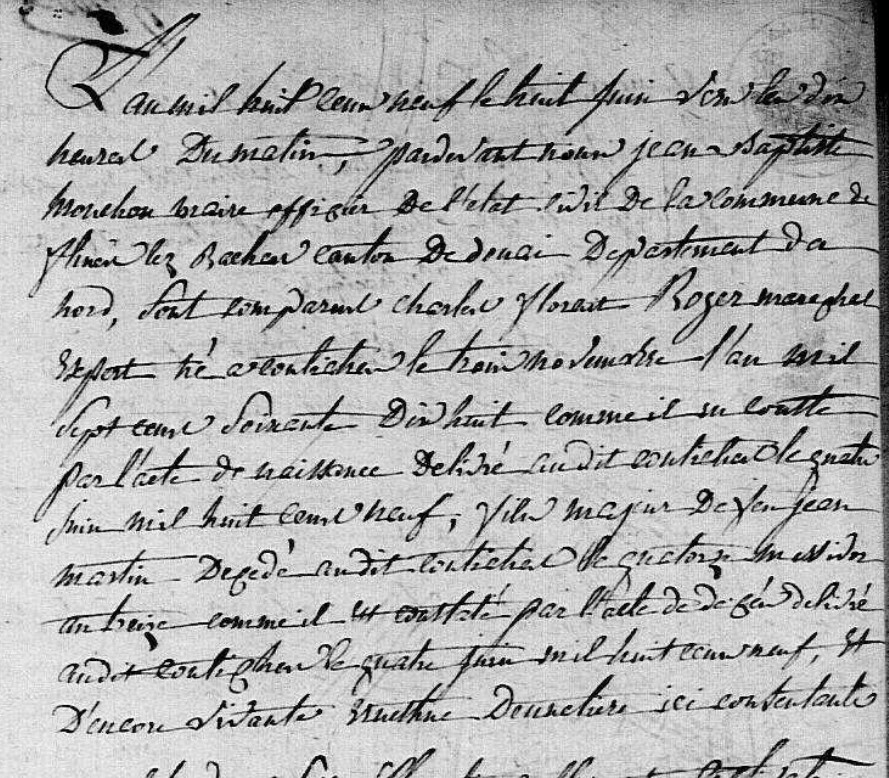 L'an mil huit cent neuf le huit juin vers les dix
heures Du matin, pardevant nous jean Baptiste
Mouchon maire officier De l'état civil De la commune de
flines lez Raches canton De douai Departement du
nord, sont comparus charles florent Roger marechal
Expert né a coutiches le trois novembre l'an mil
sept cent soixante Dix huit comme il en conste
par l'acte de naissance Delivré audit coutiches le quatre
juin mil huit cent neuf, fils majeur De feu jean
martin Decedé audit coutiches le quatorze messidor
an treize comme il est constaté par l'acte de decés delivré
audit coutiches le quatre juin mil huit cent neuf, et
D'encore vivante ici consentante